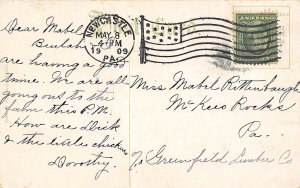 Dear Mabel
Beulah
are having a good
time. We are all
going out to the
farm this P.M.
How are dick
& the little chicken
Dorothy.
NEWCASTLE
MAY 8
4-PM
1909
PA.
Miss Mabel Rittenbaugh
McKees Rocks
Pa.
℅ Greenfield Lumber Co